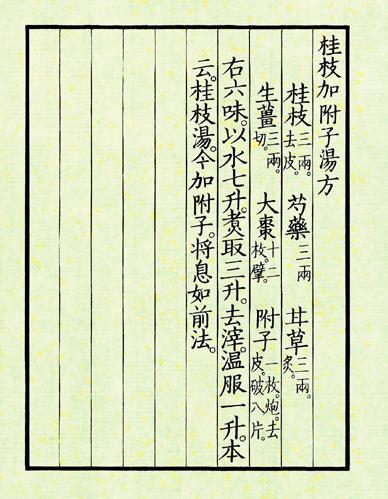 桂枝加附子湯方
桂枝三兩。去皮。 芍藥三兩 甘草三兩。炙。
生薑三兩。切。 大棗十二枚。擘。 附子一枚。炮。去皮。破八片。
右六味。以水七升。煮取三升。去滓。温服一升。本
云。桂枝湯。今加附子。将息如前法。